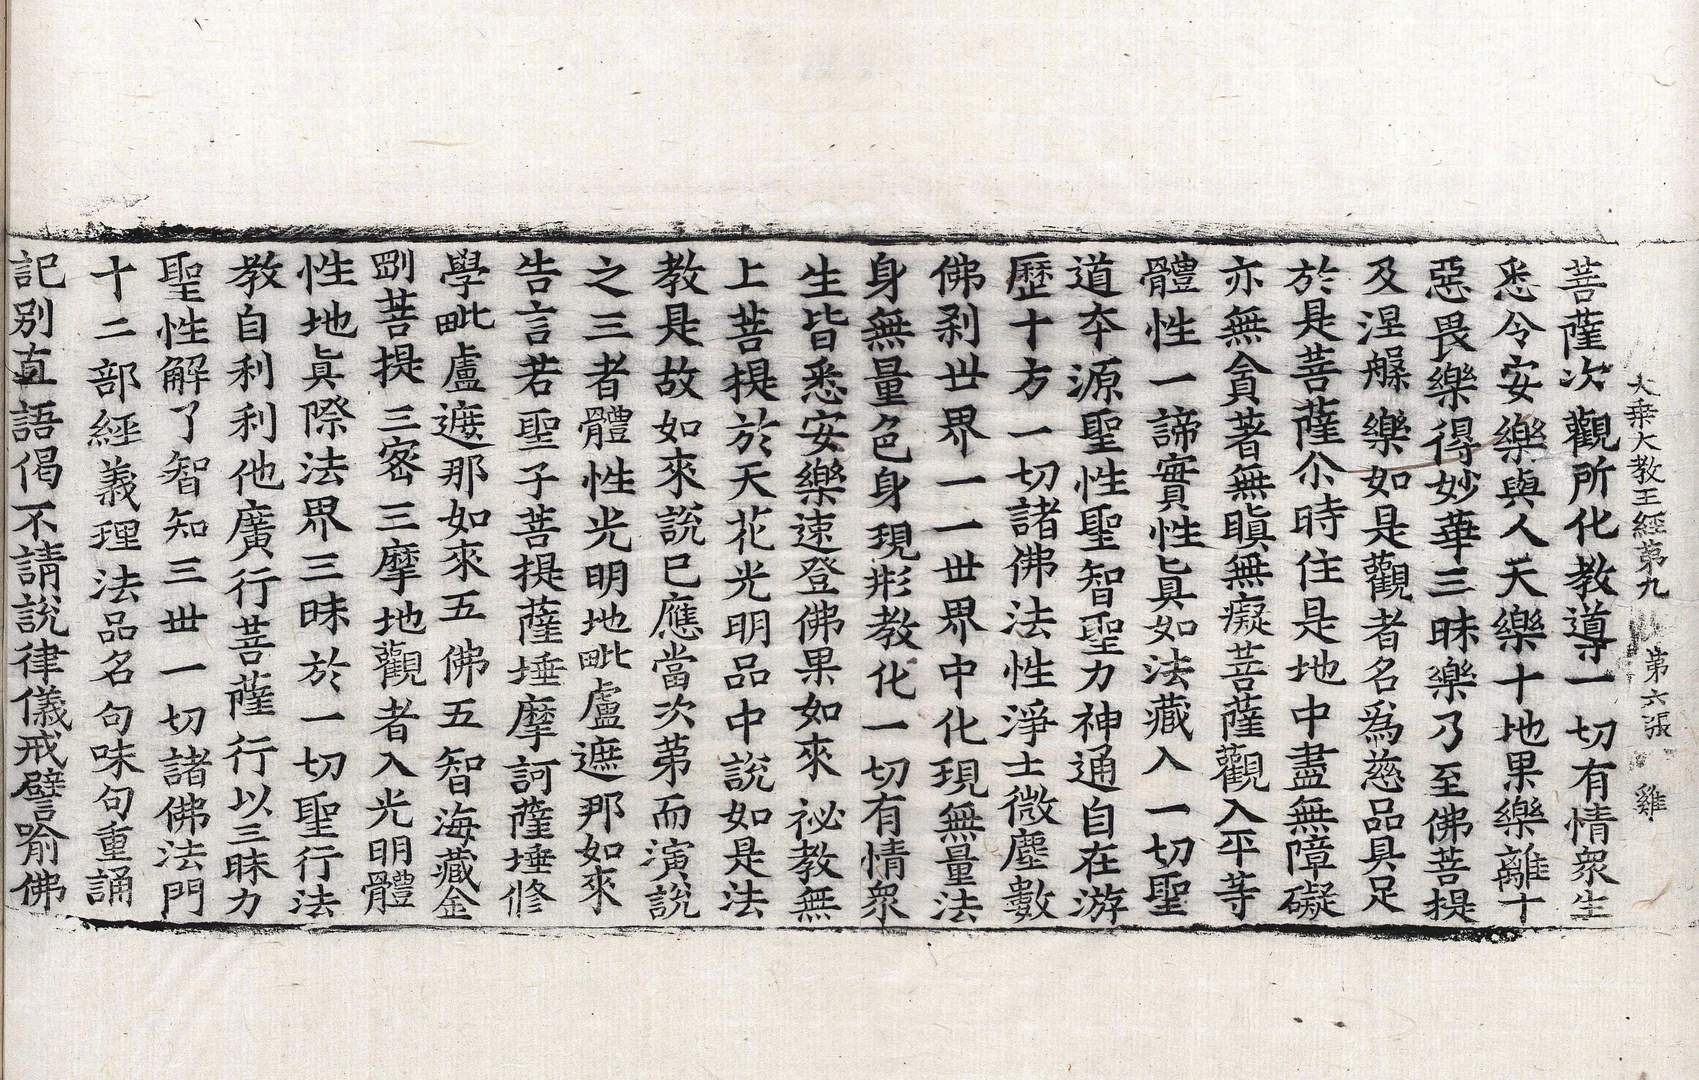 大乗大教王經第九　第六張　雞
菩薩次觀所化教導一切有情衆生
悉令安樂與人天樂十地果樂離十
惡畏樂得妙華三昧樂乃至佛菩提
及涅槃樂如是觀者名爲慈品具足
於是菩薩尒時住是地中盡無障礙
亦無貪著無瞋無癡菩薩觀入平等
體性一諦實性眞如法藏入一切聖
道夲源聖性聖智聖力神通自在游
歷十方一切諸佛法性淨土微塵數
佛刹世界一一世界中化現無量法
身無量色身現形教化一切有情衆
生皆悉安樂速登佛果如來祕教無
上菩提於天花光明品中說如是法
教是故如來說已應當次第而演說
之三者體性光明地毗盧遮那如來
告言若聖子菩提薩埵摩訶薩埵修
學毗盧遮那如來五佛五智海藏金
剛菩提三密三摩地觀者入光明體
性地眞際法界三昧於一切聖行法
教自利利他廣行菩薩行以三昧力
聖性解了智知三世一切諸佛法門
十二部經義理法品名句味句重誦
記別直語偈不請說律儀戒譬喻佛